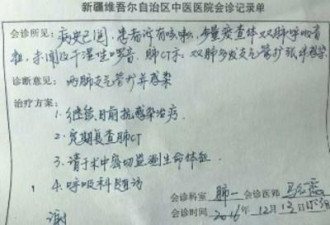 新疆维吾尔自治区中医医院会诊记录单
会诊所见：病史已阅，患者诉有咳嗽，少量痰 查体双肺呼吸音
粗，未闻及干湿性啰音，肺CT示：双肺多发支气管扩张并感染
诊断意见：两肺支气管扩张并感染
治疗方案：
1. 继续目前抗感染治疗。
2. 定期复查肺CT
3. 请于术中密切监测生命体征
4. 呼吸科随访
谢
会诊科室 肺一 会诊医师
会诊时间：2016年12月12日